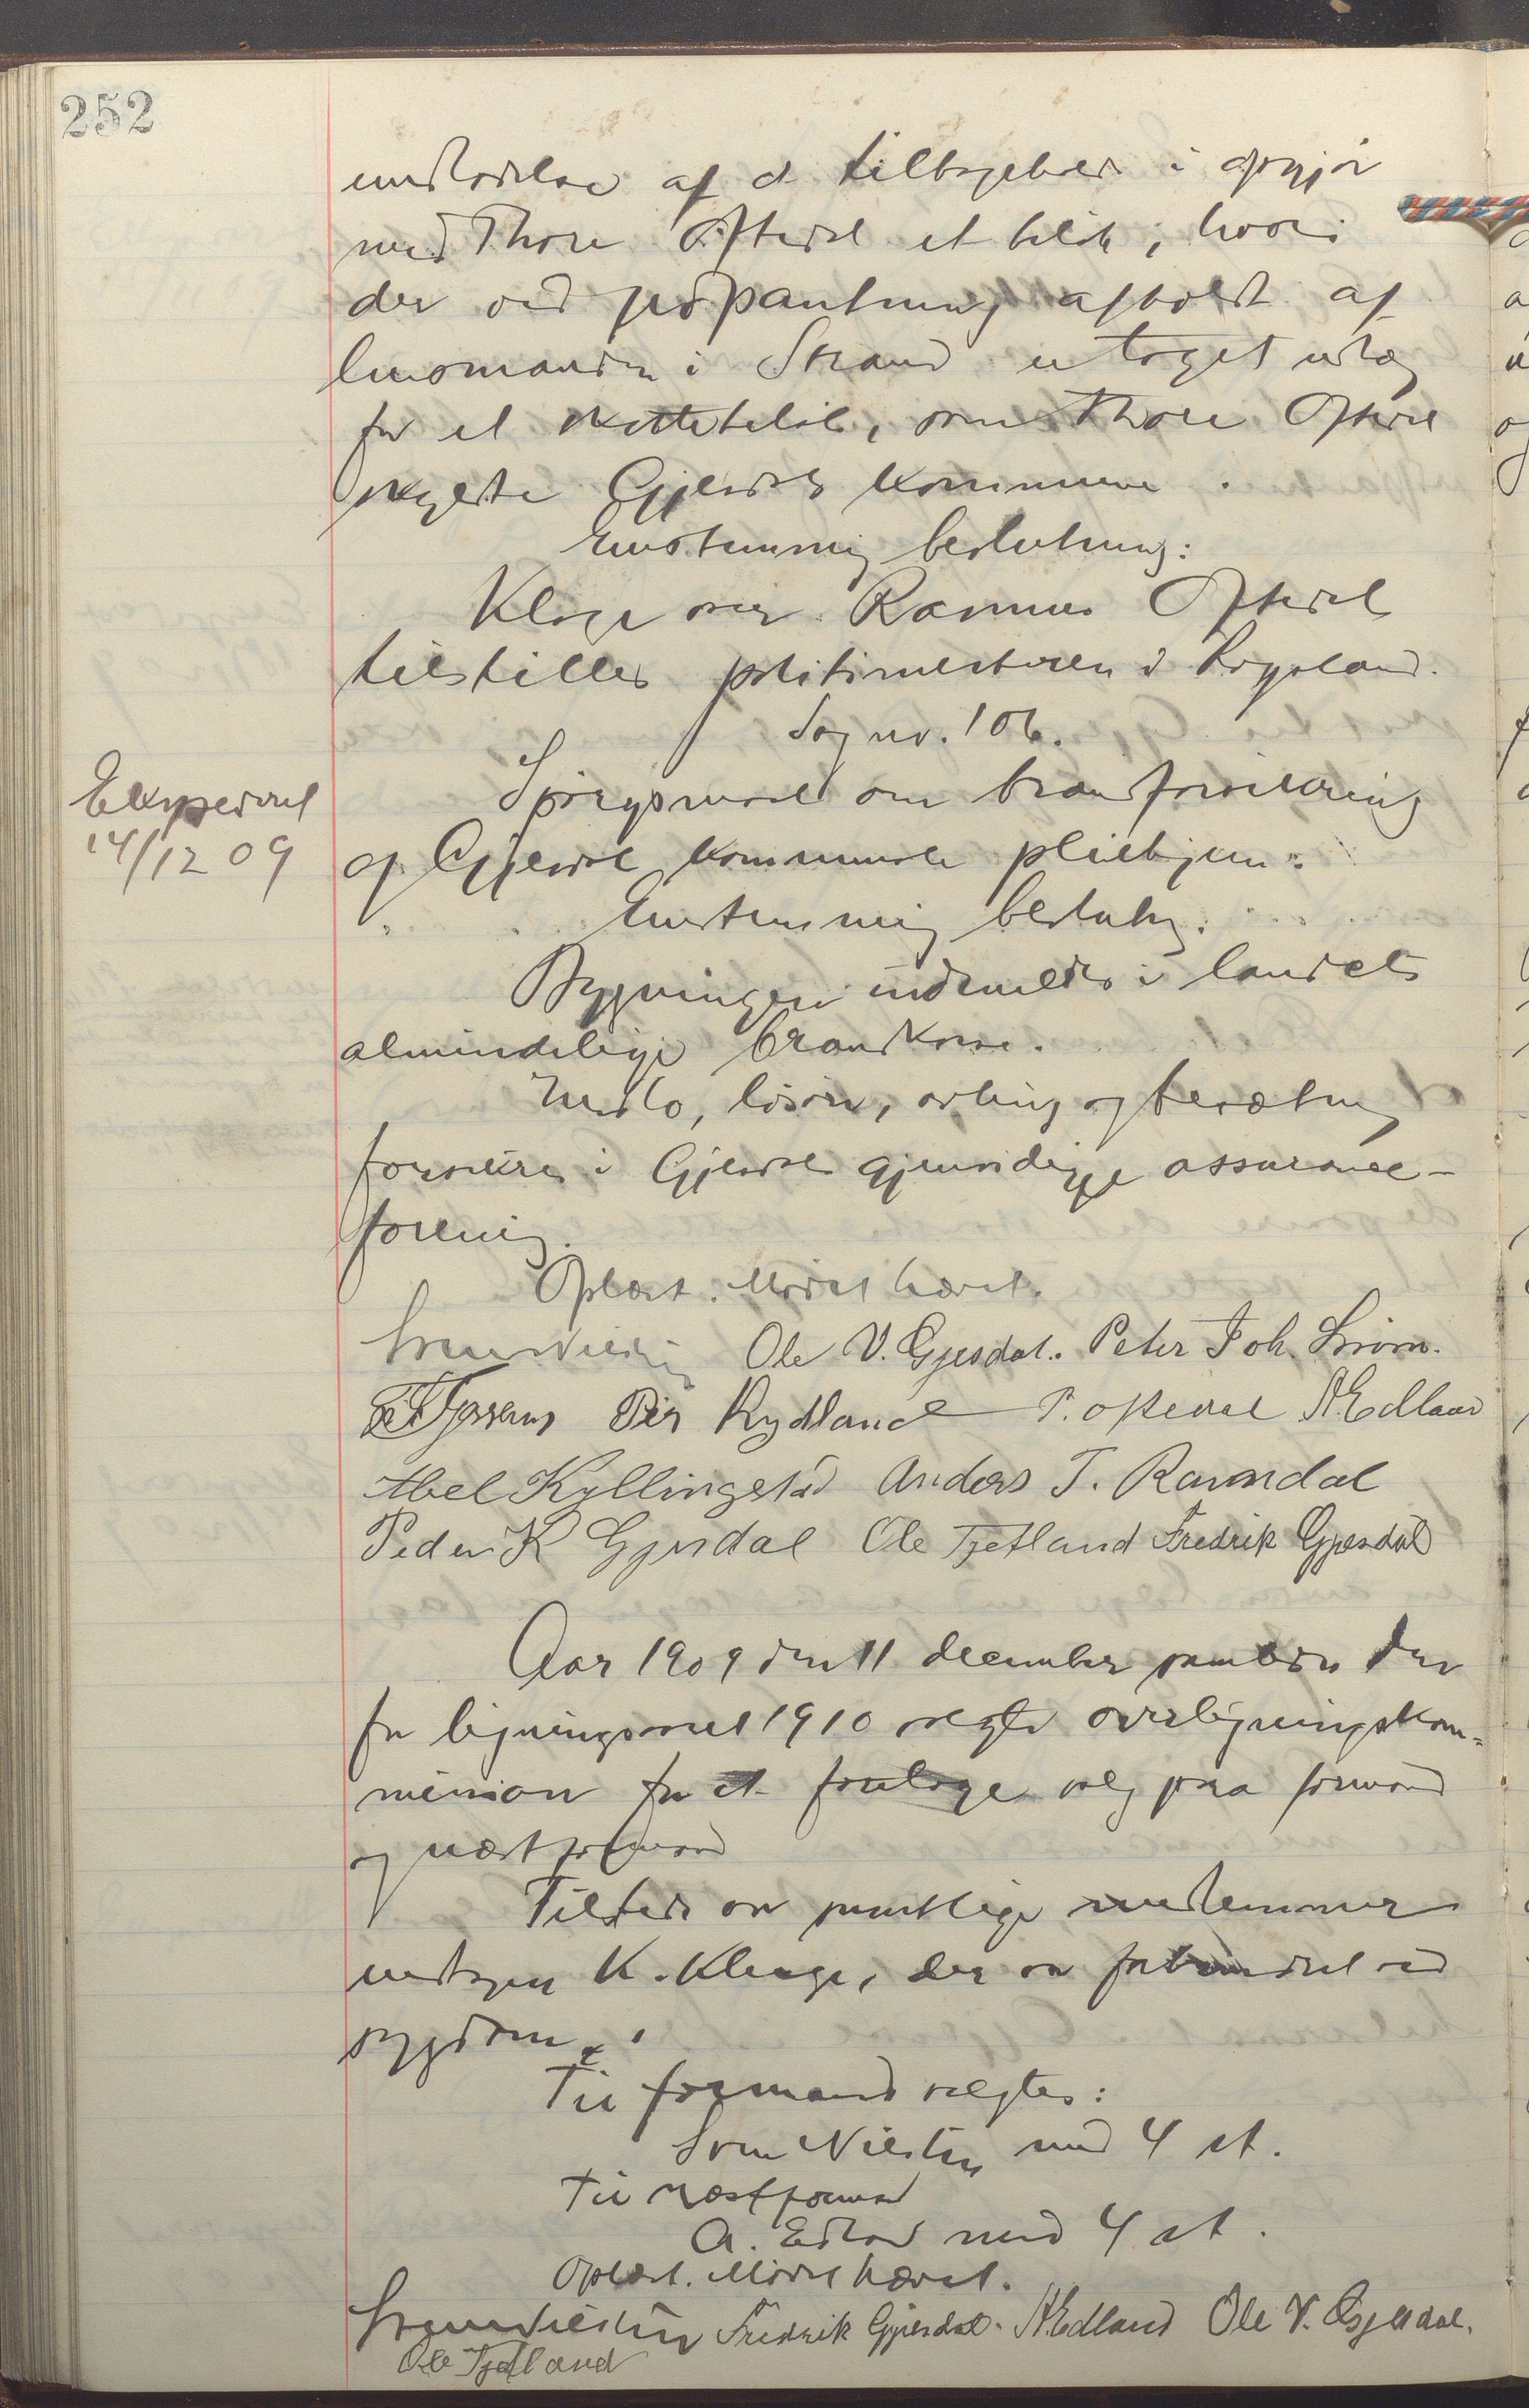 252
undladelse af at tilbagebetale i opgjør
med Thore Oftedal et beløb, hvori
der ved udpantning afholdt af
lensmanden i Strand er taget udlæg
for et skattebeløb, som Thore Oftedal
skyldte Gjesdal kommune.
Enstemmig beslutning:
Klage over Rasmus Oftedal
tilstilles politimesteren i Rogaland.
Sag nr. 106.
Spørgsmaal om brandforsikring
Ekspederet
14/12 09
af Gjesdal kommunale pleiehjem.
Enstemmig beslutng:
Bygningen indmeldes i landets
almindelige brandkasse.
Indbo, løsøre, avling og besætning
forsikres i Gjesdal gjensidige assurance-
forening.
Oplæst. Mødet hævet.
Ole V. Gjesdal. Peter Joh. Limm.
Per Rydland P. Oftedal A. Edland
Abel Kyllingstad Anders T. Ravndal
Peder K Gjesdal Ole Tjetland Fredrik Gjesdal
Aar 1909 den 11 december samledes den
for ligningsaaret 1910 valgte overligningskom-
mission for at foretage valg paa formand
og næstformand
Tilstede var samtlige medlemmer
undtagen K. Kluge, der var forhindret ved
sygdom.
Til formand valgtes:
Sven Nilsen med 4 st.
Til næstformand
A. Edland med 4 st.
Oplæst. Mødet hævet.
Fredrik Gjesdal. A. Edland Ole V. Gjesdal.
Ole Tjetland